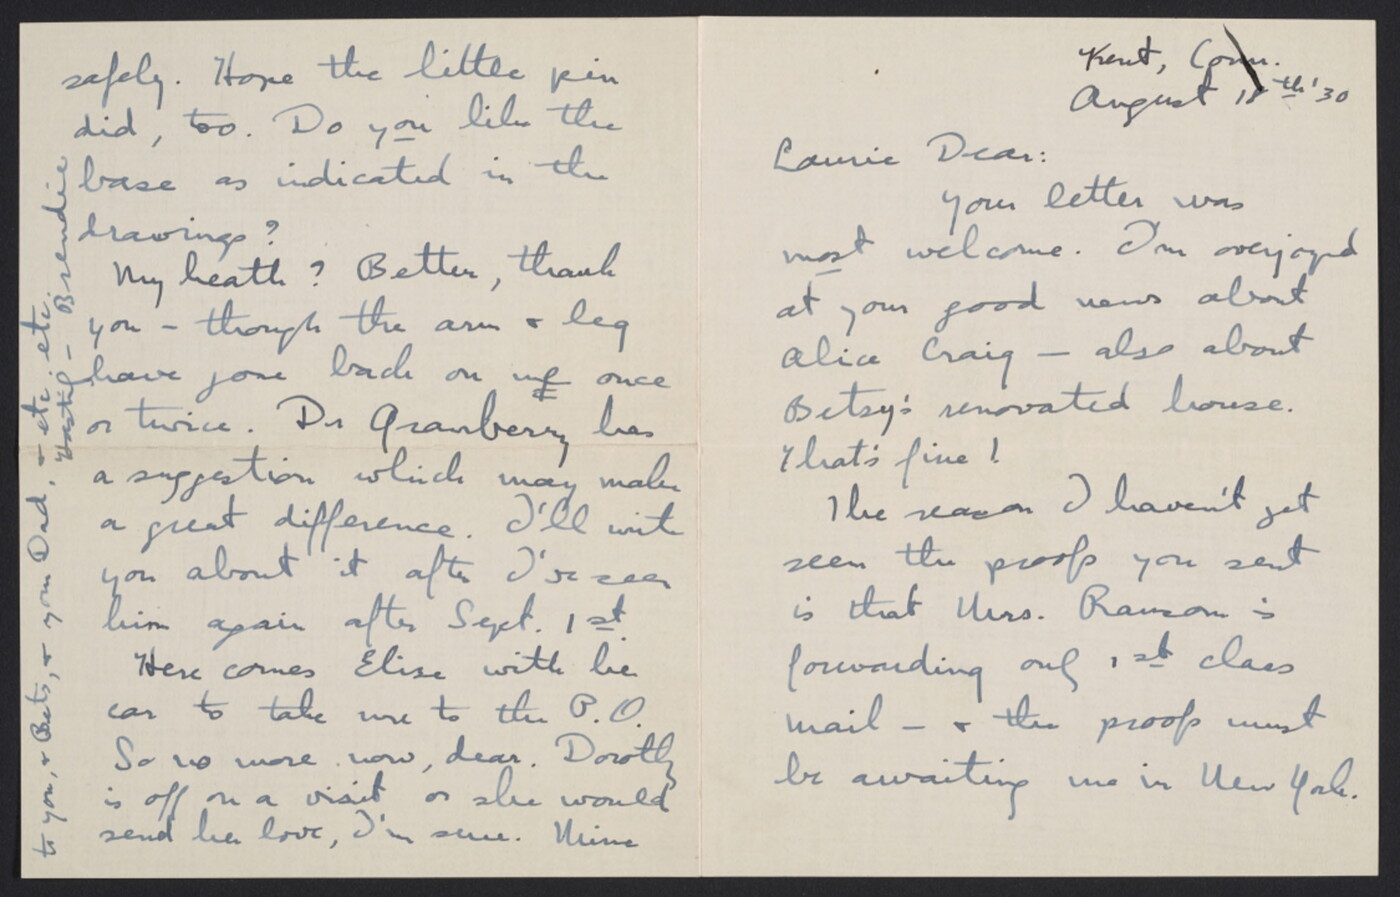 Kent, Conn.
August 18th '30
Laurie Dear:
Your letter was
most welcome. I'm overjoyed
at your good news about
Alice Craig — also about
Betsy's renovated house.
That's fine!
The reason I haven't yet
seen the proofs you sent
is that Mrs. Ransom is
forwarding only 1st class
mail — & the proofs must
be awaiting me in New York.
safely. Hope the little pin
did, too. Do you like the
base as indicated in the
drawings?
My heath? Better, thank
you – though the arm & leg
have gone back on me once
or twice. Dr Granberry has
a suggestion which may make
a great difference. I'll write
you about it after I've seen
him again after Sept. 1st.
Here comes Elise with her
car to take me to the P.O.
So no more now, dear. Dorothy
is off on a visit or she would
send her love, I'm sure. Mine
to you, & Bets, & your Dad, & etc. etc.
Hastily – Brendie